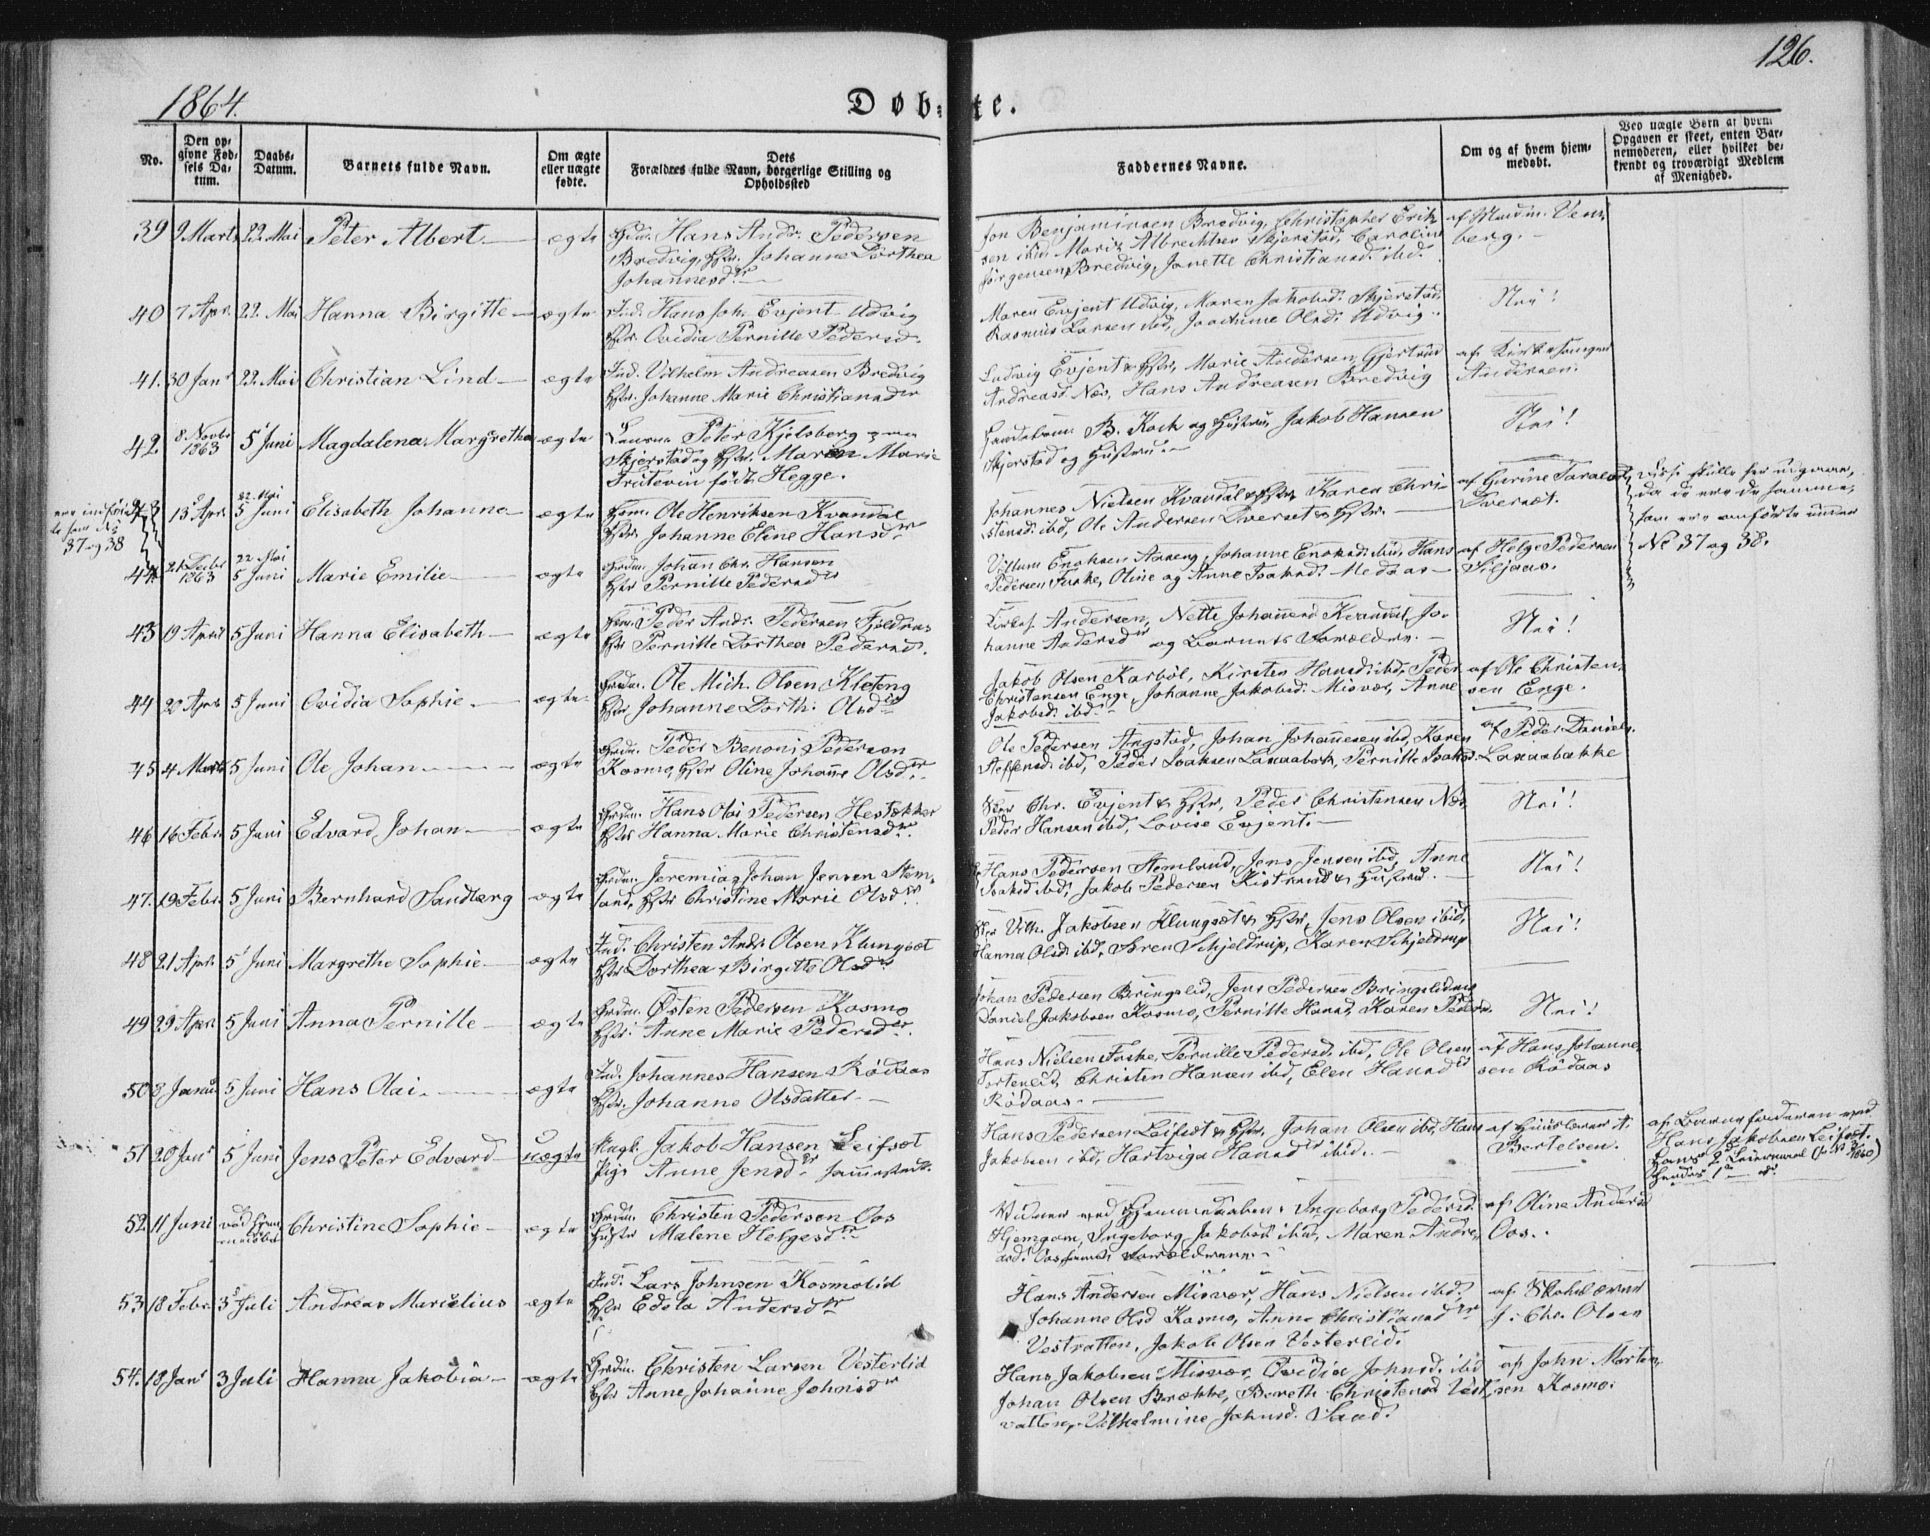 1864.
126.
Døb=
te.
No.
Den op-
givne Fød-
sels Da-
tum.
Daabs-
Datum.
Barnets fulde Navn.
Om ægte
eller uægte
fødte.
Dets
Forældres fulde Navn, borgerlige Stilling og
Opholdssted
Faddernes Navne.
Om og af hvem hjem-
medøbt.
Ved uægte Børn af hvem
Opgaven er skeet, enten Bar-
nemoderen, eller hvilket be-
kjendt og troværdigt Medlem
af Menighed.
39 9 Marts 22 Mai Peter Albert ægte Hans Andr. Pedersen
Bredvig, Hstr. Johanne Dorthea
Johannesdr.
Jon Benjaminsen Bredvig, Christopher Erik-
sen ibid Maria Albrechtsen Skjerstad, Caroline
Jørgensen Bredvig, Janette Christiansd. ibid.
berg.
40 7 Apr. 22 Mai Hanna Birgitte ægte Ind. Hans Joh. Evjent Udvig
Hstr. Ovidia Pernille Pedersd.
Maren Evjent Udvig, Maren Jakobsd. Skjerstad,
Rasmus Larsen ibid, Joachime Olsd. Udvig.
Nei!
41. 30 Janr 22 Mai Christian Lind ægte Ind. Vilhelm Andreasen Bredvig
Hstr. Johanne Marie Christiansdr
Ludvig Evjent & Hstr, Marie Andersen, Gjertrud
Andreasd Næs, Hans Andreasen Bredvig
af Kirkesanger
Andersen.
42 8 Novbr
1863 5 Juni Magdalena Margretha ægte Peter Kjelsberg
Skjerstad og Hstr. Maren Marie
født Hegge.
B. Koch og Hustru, Jakob Hansen
Skjerstad og Hustru.
Nei!
37 og 38
43 13 Apr. 22 Mai
5 Juni Elisabeth Johanna ægte Ole Henriksen Kvandal
Hstr. Johanne Eline Hansdr
Johannes Nielsen Kvandal & Hstr, Karen Chri-
stensd. ibid, Ole Andersen Tverset & Hstr.
Tverset.
da de ere de samme,
som ere anførte under
No 37 og 38.
44 21 Decbr
1863 22 Mai
5 Juni Marie Emilie ægte Johan Chr. Hansen
Hstr Pernille Pedersdr
Villum Enoksen Aaseng, Johanne Enoksd. ibid, Hans
Pedersen Fuske, Oline og Anne Isaksd. Medaas
af Helge Pedersen
Siljaas.
43 9 April 5 Juni Hanna Elisabeth ægte Peder Andr. Pedersen
Hstr Pernille Dorthea Pedersd.
Andersen, Nette Johansd Kvandal, Jo-
hanne Andersdr og Barnets Forældre.
Nei!
44 20 Apr. 5 Juni Ovidia Sophie ægte Ole Mich. Olsen Kleteng
Hstr Johanne Dorth. Olsdtr
Jakob Olsen Karbøl, Kirsten Hansd. ibid, Peder
Christensen Enge, Johanne Jakobsd. Misvær, Anne
Jakobsd. ibid.
af Ole Christen-
sen Enge.
45 4 Marts 5 Juni Ole Johan ægte Peder Benoni Pedersen
Kosmo, Hstr Oline Johanne Olsdtr.
Ole Pedersen Angstad, Johan Johannesen ibid, Karen
Steffensd. ibid, Peder Isaksen, Pernille Isaksd.
af Peder Daniels.
46 16 Febr. 5 Juni Edvard Johan ægte Hans Olai Pedersen Hestækker
Hstr Hanna Marie Christensdtr.
Chr. Evjent & Hstr, Peder Christensen Næs,
Peder Hansen ibid, Lovise Evjent.
Nei!
47. 19 Febr. 5 Juni Bernhard Sandberg ægte Jeremias Johan Jensen Stem-
land, Hstr Christine Marie Olsdtr.
Hans Pedersen Stemland, Jens Jensen ibid, Anne
Isaksd ibid, Jakob Pedersen Kistrand & Hustru.
Nei!
48 21 Apr. 5 Juni Margrethe Sophie ægte Ind. Christen Andr. Olsen Klungset
Hstr Dorthea Birgitte Olsdr
Vilh. Jakobsen Klungset & Hstr, Jens Olsen ibid,
Hanna Olsd. ibid, Søren Schjeldrup, Karen Schjeldrup
Nei!
49 29 Apr. 5 Juni Anna Pernille ægte Østen Pedersen Kosmo
Hstr. Anne Marie Pedersdtr.
Johan Pedersen Bringslid, Jens Pedersen Bringslid
Daniel Jakobsen Kosmo, Pernille Hansd, Karen Pedersd.
Nei!
50 8 Januar 5 Juni Hans Olai ægte Ind. Johannes Hansen Rødaas
Hstr. Johanne Olsdatter
Hans Nielsen Fuske, Pernille Pedersd. ibid, Ole Olsen
Tortenlid, Christen Hansen ibid, Elen Hansdtr
Rødaas.
af Hans Johanne-
sen Rødaas
51 20 Janr 5 Juni Jens Peter Edvard uægte Ungk. Jakob Hansen Leifset
Pige Anne Jensdr. sammesteds.
Hans Pedersen Leifset & Hstr, Johan Olsen ibid, Hans
Jakobsen ibid, Hartviga Hansdr ibid.
Bertelsen.
af Barnefaderen ved
Hans Jakobsen Leifset.
Hans 2t Leiermaal
Hendes 1te
52 11 Juni Christine Sophie ægte Christen Pedersen Oos
Hustr Malene Helgesdtr
Vidner ved Hjemmedaaben: Ingeborg Pedersd.
Hjemgam, Ingeborg Jakobsd ibid, Maren Andre-
asd. Oos samt Forældrene.
af Oline Andersd
Oos.
53 18 Febr. 3 Juli Andreas Marselius ægte Ind. Lars Johnsen Kosmolid
Hstr Edela Andersdtr
Hans Andersen Misvær, Hans Nielsen ibid,
Johanne Olsd Kosmo, Anne Christiansdtr
Vestvatten, Jakob Olsen Vesterlid.
af Skolelærer
J. Chr. Olsen
54. 18 Janr 3 Juli Hanna Jakobia ægte Christen Larsen Vesterlid
Hstr Anne Johanne Johnsdr
Hans Jakobsen Misvær, Ovidia Johnsd. ibid
Johan Olsen Brække, Berethe Christensd Vest-
vatten, Vilhelmine Johnsd. Sand.
af John Morten-
sen Kosmo.